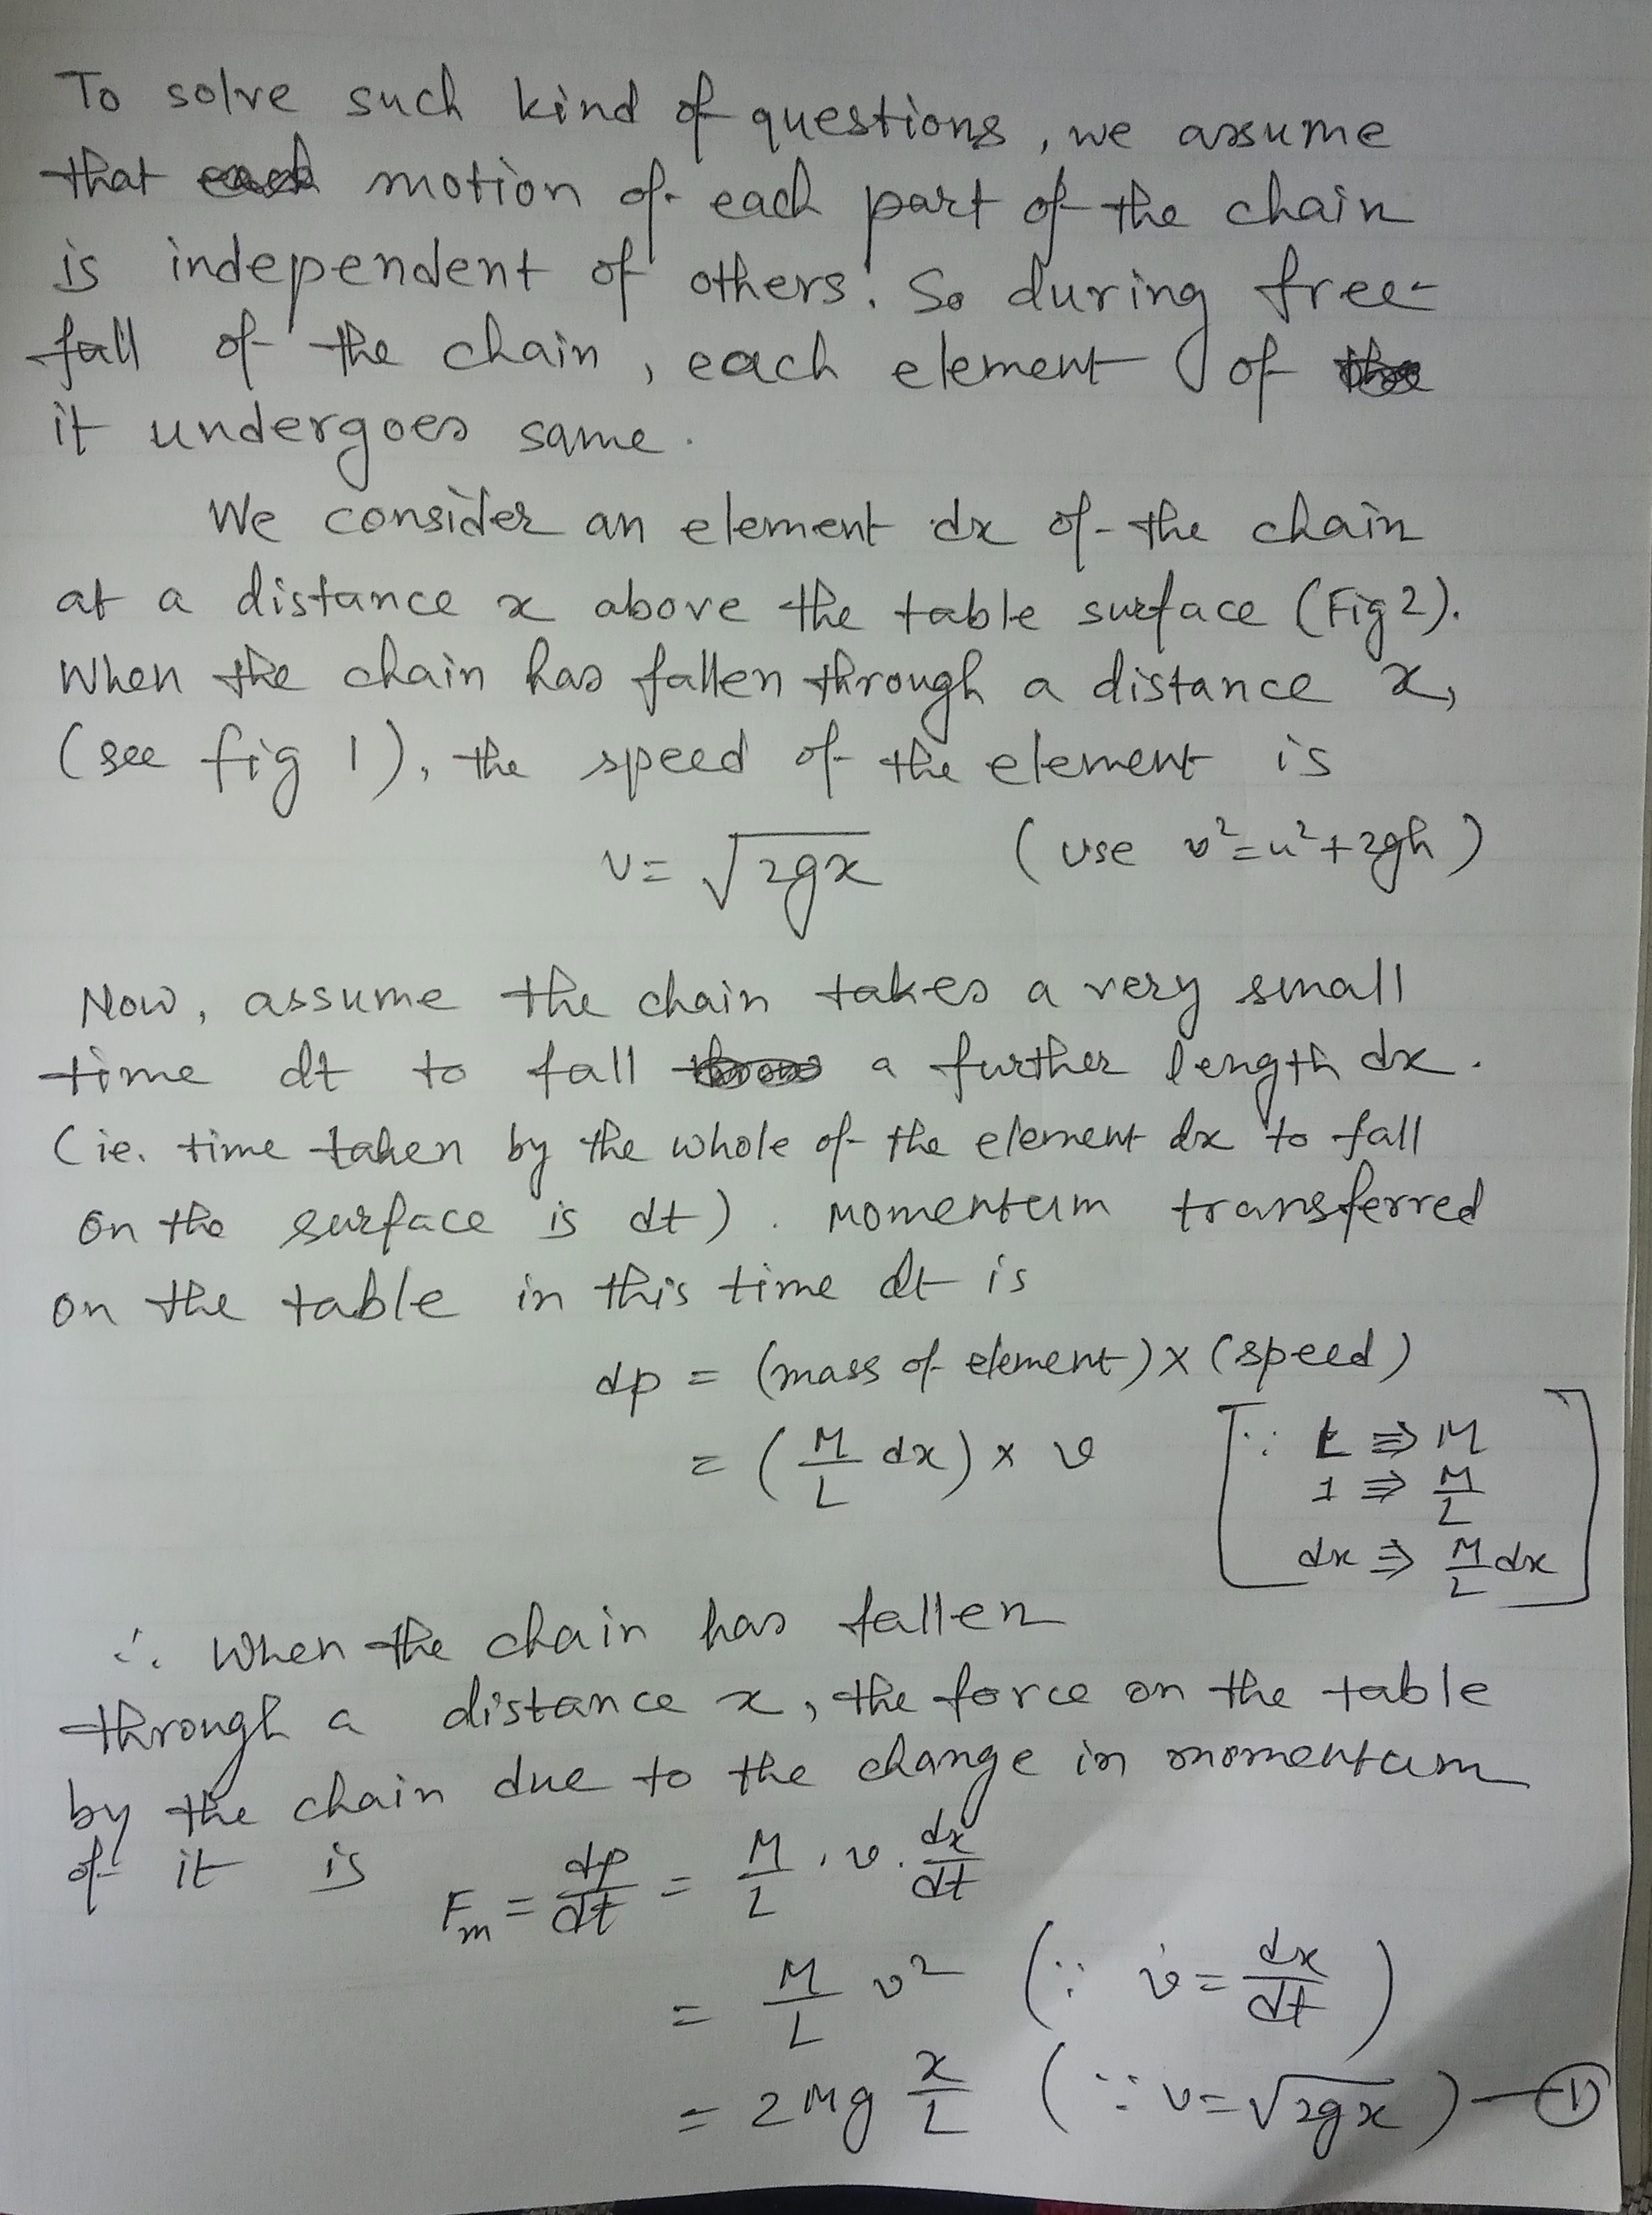 To solve such kind of questions, we assume
that motion of each part of the chain
is independent of others. So during free-
fall of the chain, each element of
it undergoes same.
We consider an element dx of the chain
at a distance x above the table surface (Fig 2).
When the chain has fallen through a distance x,
(see fig 1), the speed of the element is
v = √2gx (use v² = u² + 2gh)
Now, assume the chain takes a very small
time dt to fall a further length dx.
(ie. time taken by the whole of the element dx to fall
on the surface is dt). Momentum transferred
on the table in this time dt is
dp = (mass of element) x (speed)
= (M/L dx) x v [∵ L ⇛ M
1 ⇛ M/L
dx ⇛ M/L dx]
∴ When the chain has fallen
through a distance x, the force on the table
by the chain due to the change in momentum
of it is
Fm = dp/dt = M/L . v . dx/dt
= M/L v² (∵ v = dx/dt)
= 2Mg x/L (∵ v = √2gx) — ①